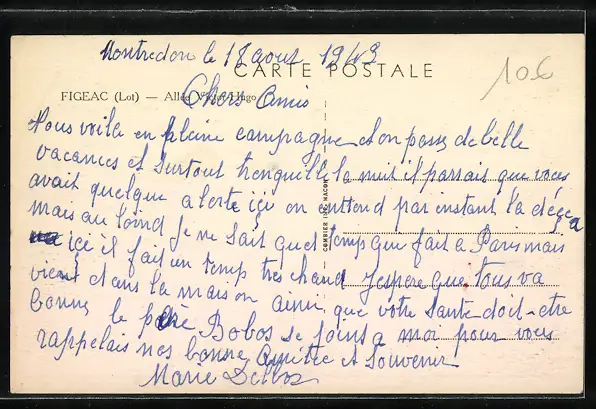 Montredon le 18 aout 1943
CARTE POSTALE
10€
Chers Amis
FIGEAC (Lot) — Allée Victor-Hugo
Nous voila en pleine campagne et on passe de belle
vacances et surtout trenquille la nuit il parrait que vous
avait quelque alerte içi on entend par instant la
mais au loind Je ne sait quel temp que fait a Paris mais
içi il fait un temp tres chaud J'espere que tous va
vient dans la maison ainsi que votre Sante doit-etre
bonne le Bobos se joint a moi pour vous
rappelais nos bonne Amitie et Souvenir
Marie Delbos
COMBIER IMP. MACON